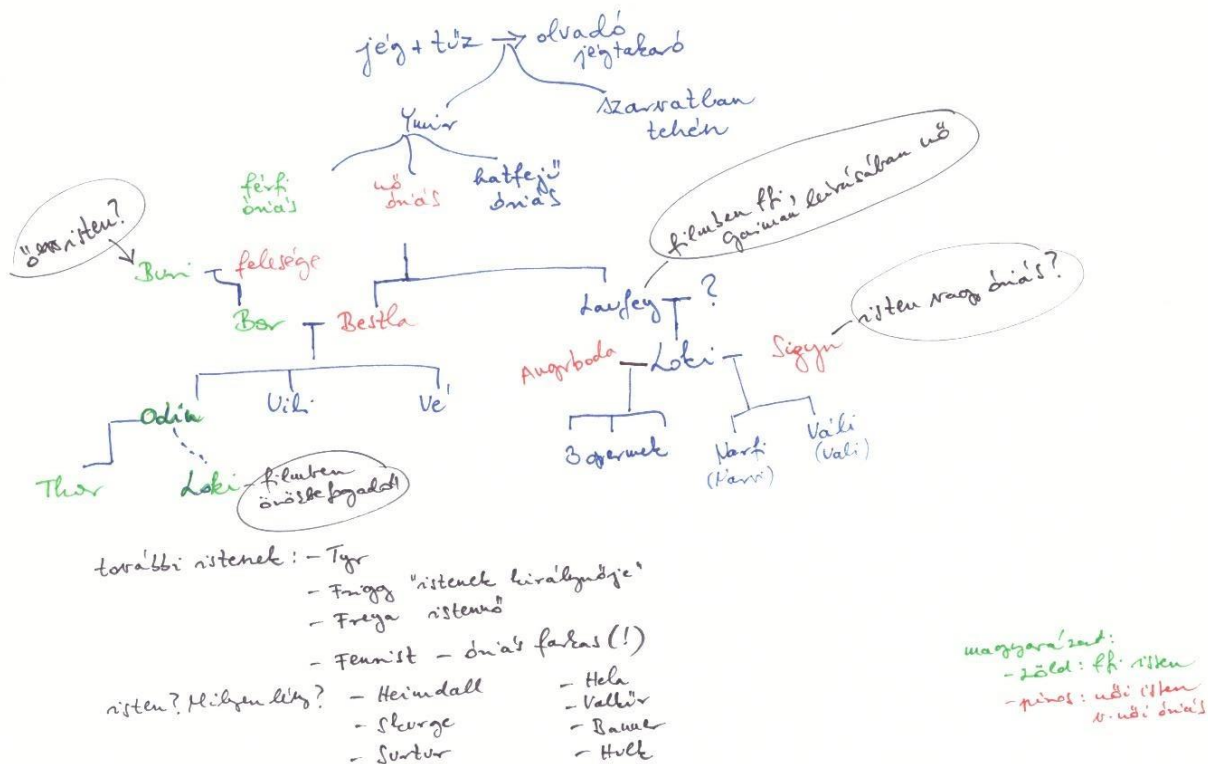 jég + tűz → olvadó
jégtakaró
Ymir
szarvatlan
tehén
férfi
óriás
nő
óriás
hatfejű
óriás
ő isten?
Buri
felesége
filmben ffi,
gaiman leírásában nő
Laufey
?
Bor
Bestla
Angrboda
Loki
Sigyn
isten vagy óriás?
Odin
Vili
Vé
3 gyermek
Narfi
(Narvi)
Váli
(Vali)
Thor
Loki
filmben
örökbefogadott
további istenek: - Tyr
- Frigg "istenek királynője"
- Freya istennő
- Fennist - óriás farkas (!)
isten? Milyen lény? - Heimdall
- Skurge
- Surtur
- Hela
- Valkür
- Banner
- Hulk
magyarázat:
- zöld: ffi isten
- piros: női isten
v. női óriás